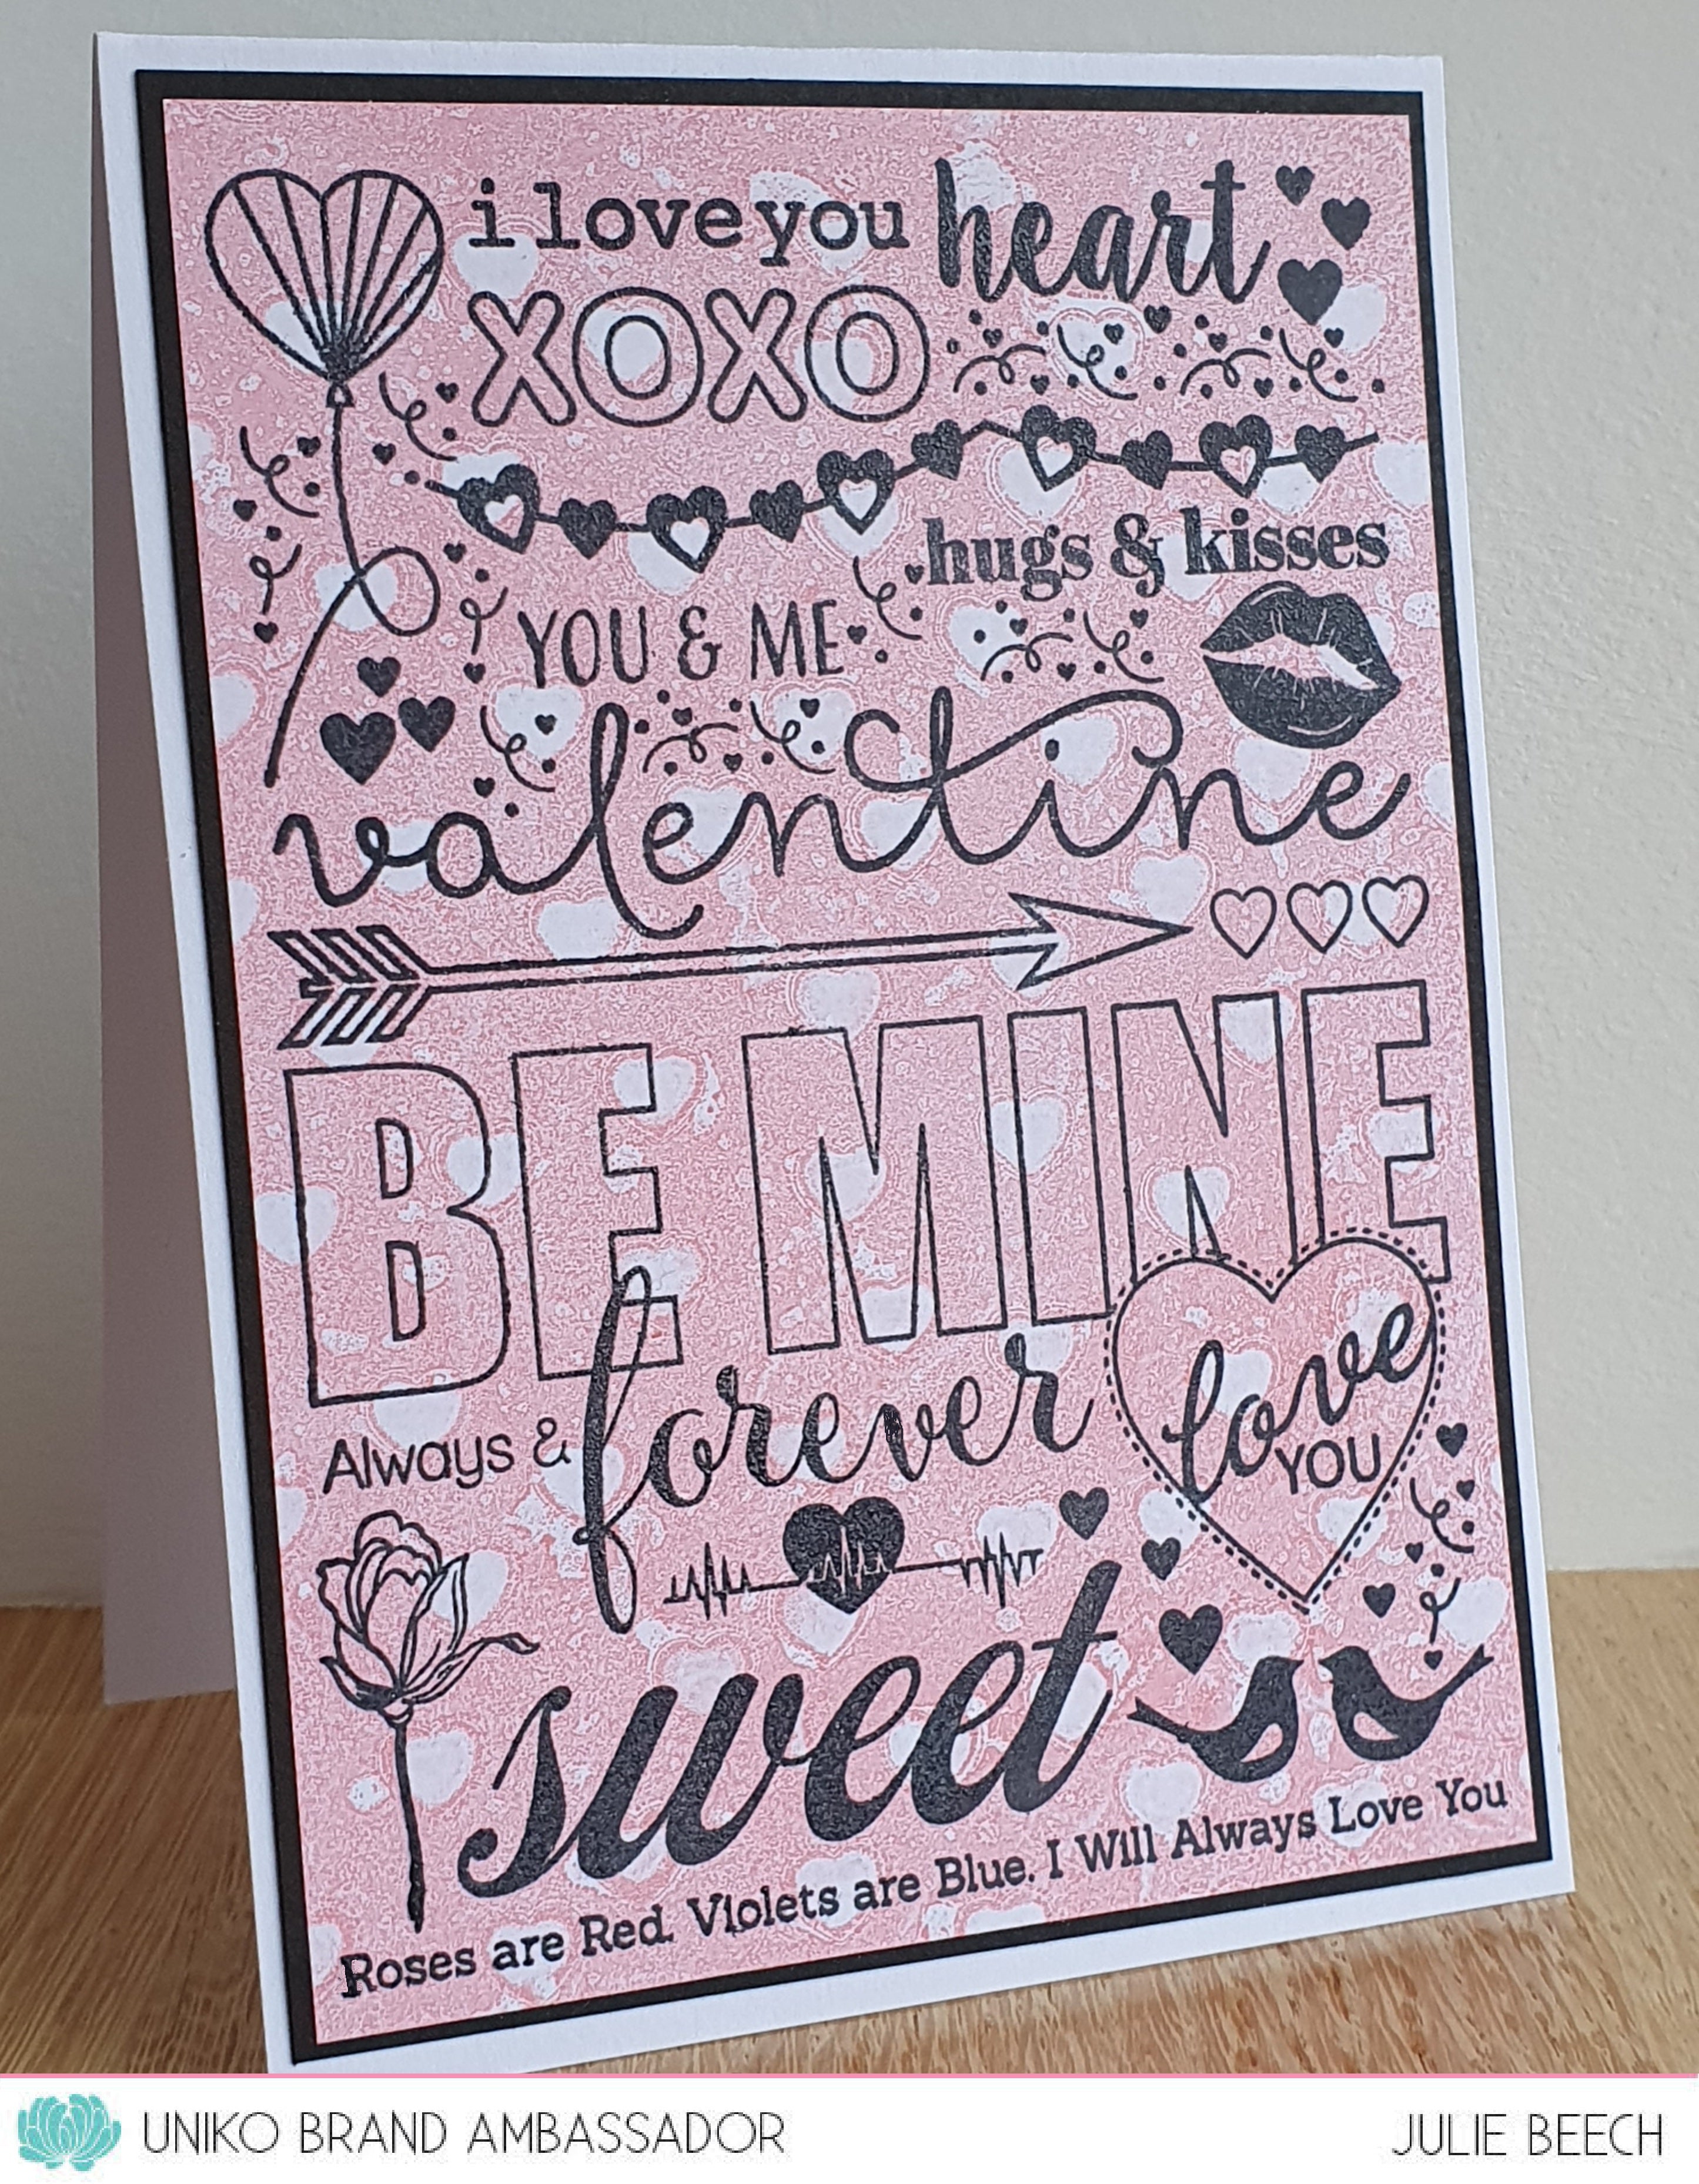 i love you
heart
XOXO
hugs & kisses
YOU & ME
valentine
BE MINE
Always & forever
love
YOU
sweet
Roses are Red. Violets are Blue. I Will Always Love You
UNIKO BRAND AMBASSADOR
JULIE BEECH